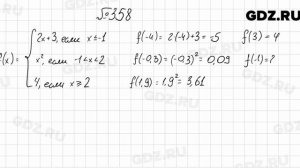 GDZ.RU
№358
f(x) =
2x+3, если x≤-1
x², если -1<x<2
4, если x≥2
f(-4) = 2(-4)+3 = -5
f(-0,3) = (-0,3)² = 0,09
f(1,9) = 1,9² = 3,61
f(3) = 4
f(-1) =